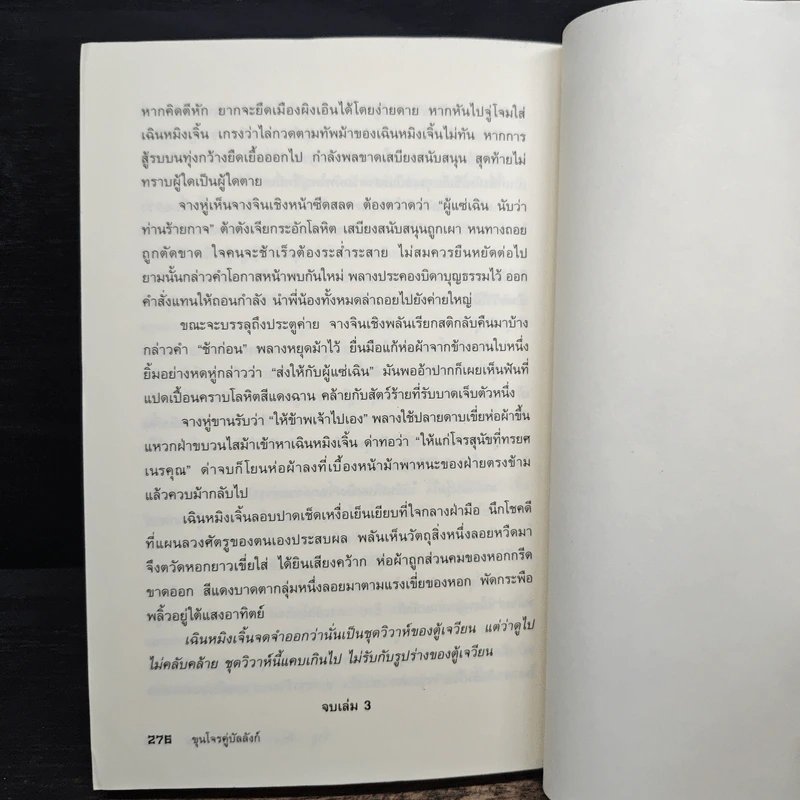 หากคิดตีหัก ยากจะยึดเมืองผิงเอินได้โดยง่ายดาย หากหันไปจู่โจมใส่
เฉินหมิงเจิ้น เกรงว่าไล่กวดตามทัพม้าของเฉินหมิงเจิ้นไม่ทัน หากการ
สู้รบบนทุ่งกว้างยืดเยื้อออกไป กำลังพลขาดเสบียงสนับสนุน สุดท้ายไม่
ทราบผู้ใดเป็นผู้ใดตาย
จางหู่เห็นจางจินเชิงหน้าซีดสลด ต้องตวาดว่า "ผู้แซ่เฉิน นับว่า
ท่านร้ายกาจ" ต้าตังเจียกระอักโลหิต เสบียงสนับสนุนถูกเผา หนทางถอย
ถูกตัดขาด ใจคนจะช้าเร็วต้องระส่ำระสาย ไม่สมควรยืนหยัดต่อไป
ยามนั้นกล่าวคำโอกาสหน้าพบกันใหม่ พลางประคองบิดาบุญธรรมไว้ ออก
คำสั่งแทนให้ถอนกำลัง นำพี่น้องทั้งหมดล่าถอยไปยังค่ายใหญ่
ขณะจะบรรลุถึงประตูค่าย จางจินเชิงพลันเรียกสติกลับคืนมาบ้าง
กล่าวคำ "ช้าก่อน" พลางหยุดม้าไว้ ยื่นมือแก้ห่อผ้าจากข้างอานใบหนึ่ง
ยิ้มอย่างหดหู่กล่าวว่า "ส่งให้กับผู้แซ่เฉิน" มันพออ้าปากก็เผยเห็นฟันที่
แปดเปื้อนคราบโลหิตสีแดงฉาน คล้ายกับสัตว์ร้ายที่รับบาดเจ็บตัวหนึ่ง
จางหู่ขานรับว่า "ให้ข้าพเจ้าไปเอง" พลางใช้ปลายดาบเขี่ยห่อผ้าขึ้น
แหวกฝ่าขบวนไสม้าเข้าหาเฉินหมิงเจิ้น ด่าทอว่า "ให้แก่โจรสุนัขที่ทรยศ
เนรคุณ" ด่าจบก็โยนห่อผ้าลงที่เบื้องหน้าม้าพาหนะของฝ่ายตรงข้าม
แล้วควบม้ากลับไป
เฉินหมิงเจิ้นลอบปาดเช็ดเหงื่อเย็นเยียบที่ใจกลางฝ่ามือ นึกโชคดี
ที่แผนลวงศัตรูของตนเองประสบผล พลันเห็นวัตถุสิ่งหนึ่งลอยหวืดมา
จึงตวัดหอกยาวเขี่ยใส่ ได้ยินเสียงคว้าก ห่อผ้าถูกส่วนคมของหอกกรีด
ขาดออก สีแดงบาดตากลุ่มหนึ่งลอยมาตามแรงเขี่ยของหอก พัดกระพือ
พลิ้วอยู่ใต้แสงอาทิตย์
เฉินหมิงเจิ้นจดจำออกว่านั่นเป็นชุดวิวาห์ของตู้เจวียน แต่ว่าดูไป
ไม่คลับคล้าย ชุดวิวาห์นี้แคบเกินไป ไม่รับกับรูปร่างของตู้เจวียน
จบเล่ม 3
276 ขุนโจรคู่บัลลังก์